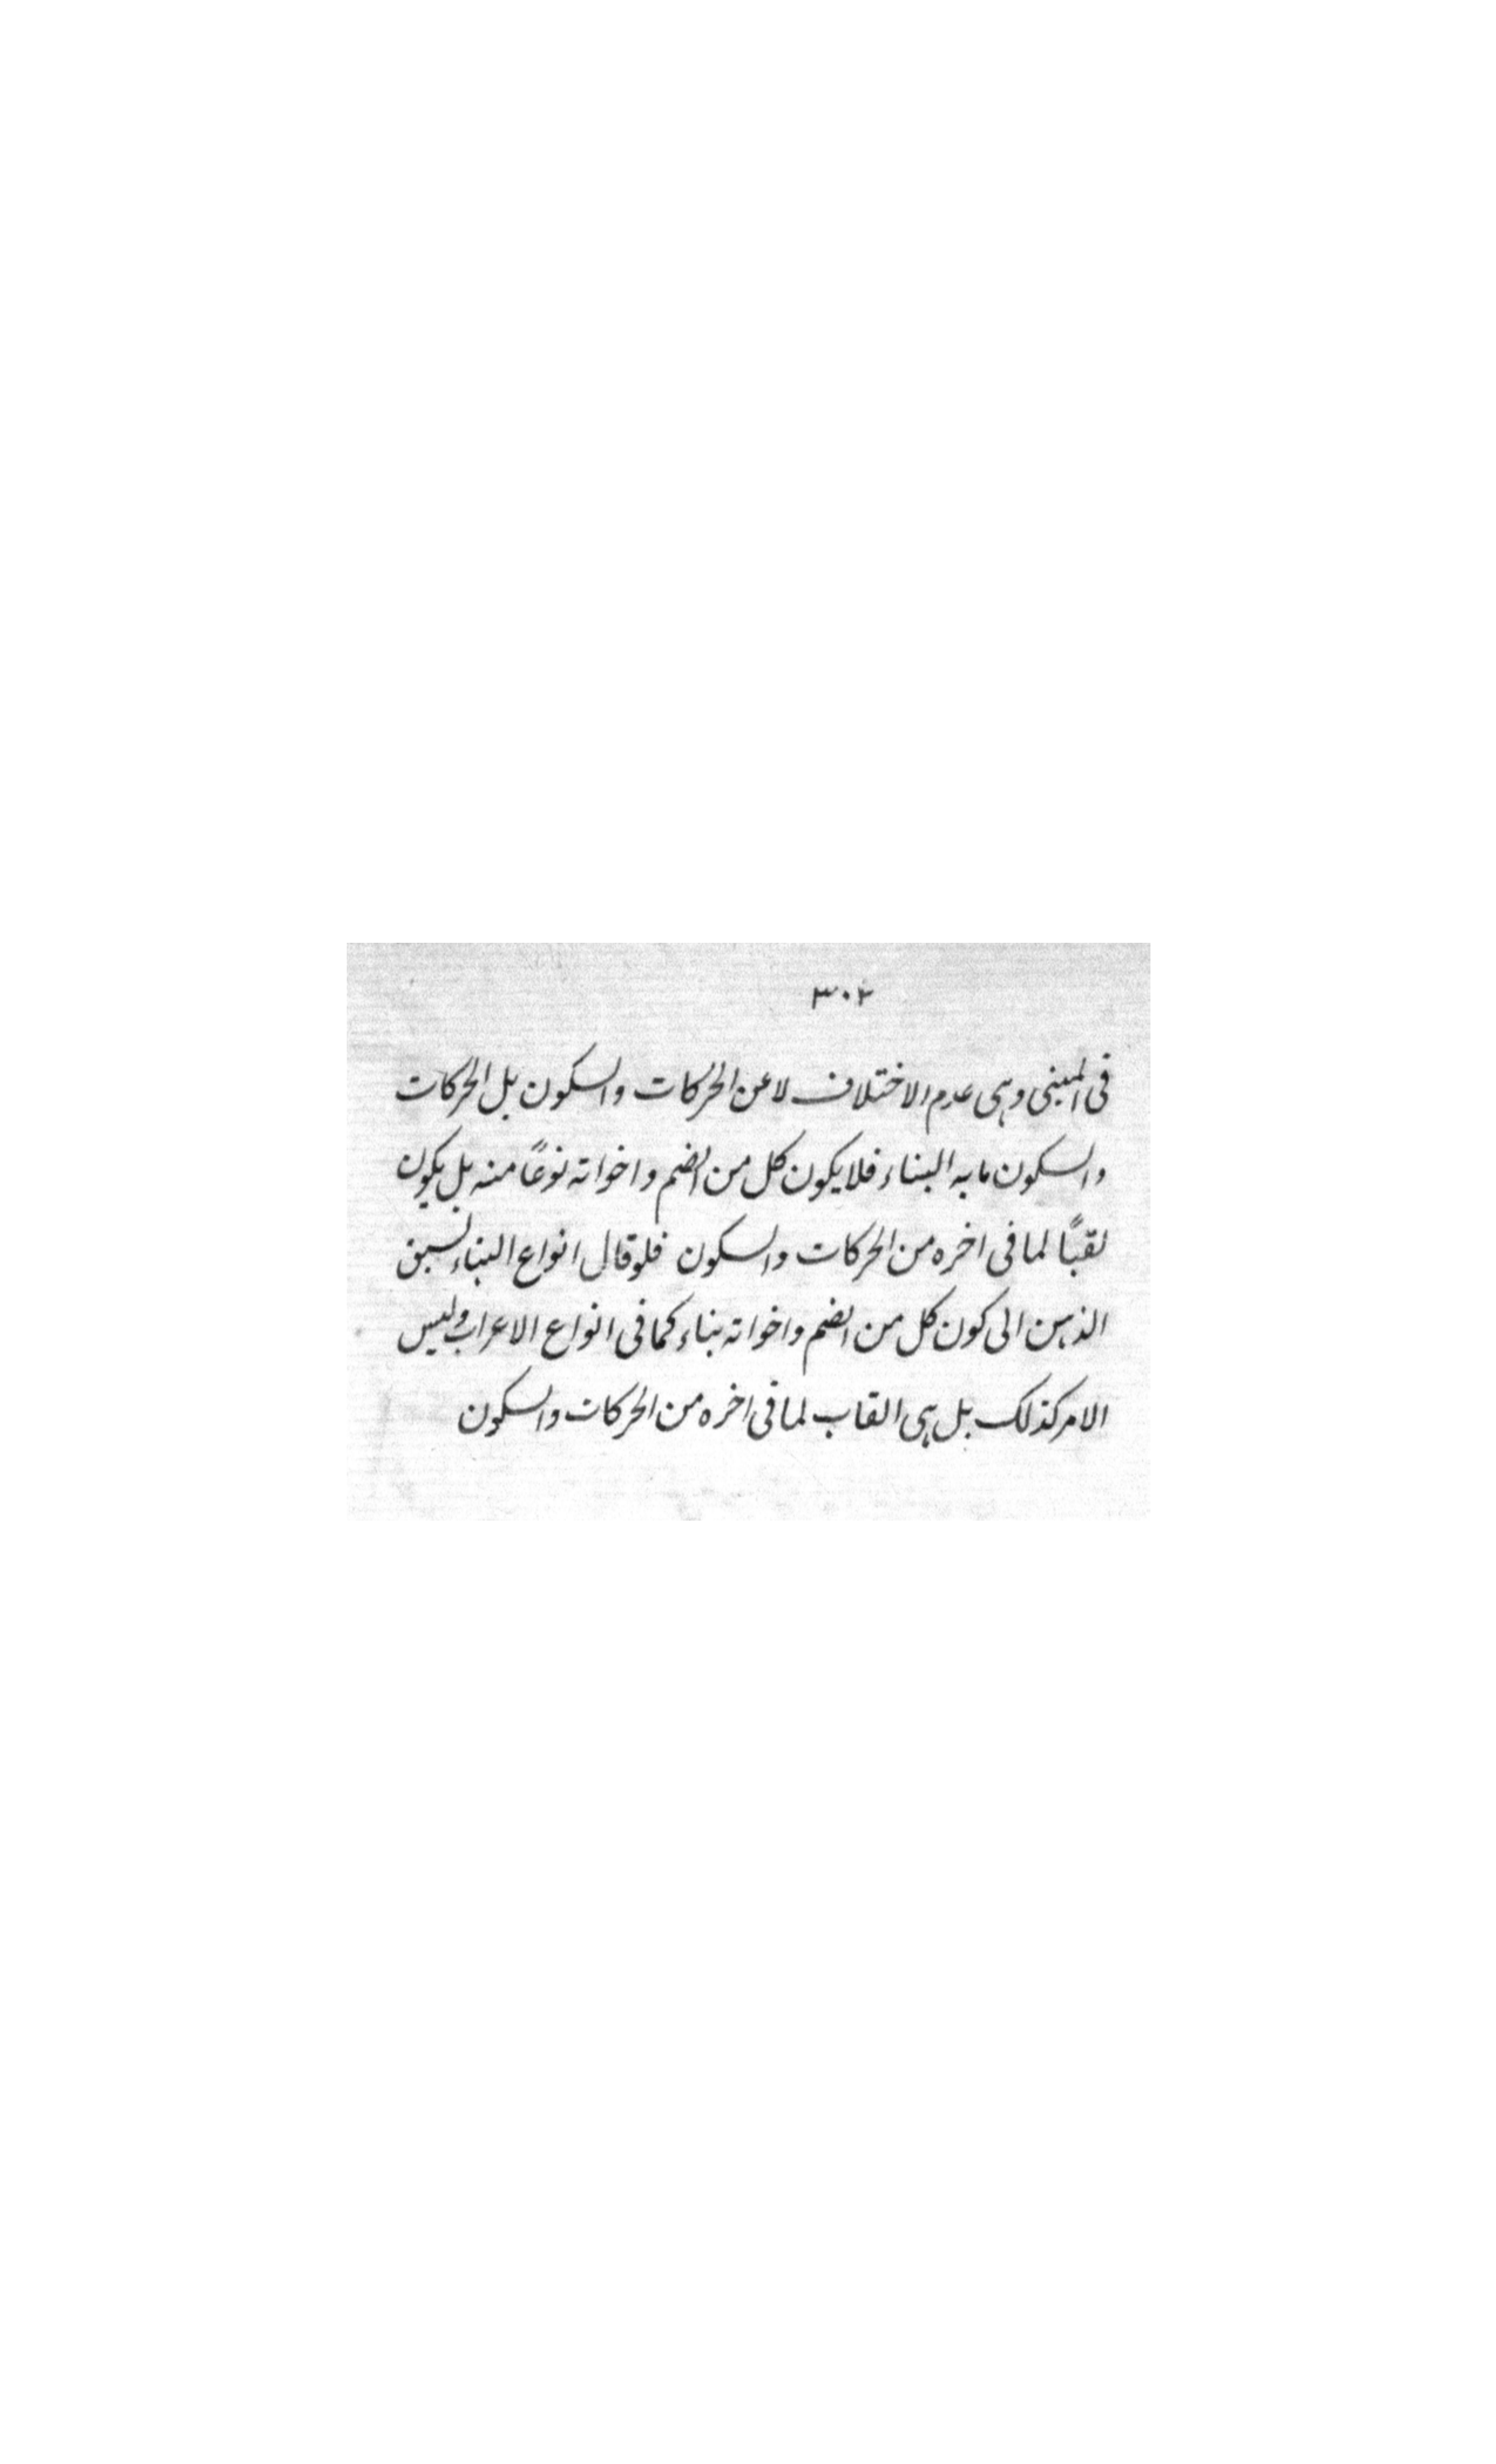 ٣٠٢
فى المبنى وهى عدم الاختلاف لا عن الحركات والسكون بل الحركات
والسكون ما به البناء فلا يكون كل من الضم واخواته نوعًا منه بل يكون
لقبًا لما فى اخره من الحركات والسكون فلو قال انواع البناء لسبق
الذهن الى كون كل من الضم واخواته بناء كما فى انواع الاعراب وليس
الامر كذلك بل هى القاب لما فى اخره من الحركات والسكون